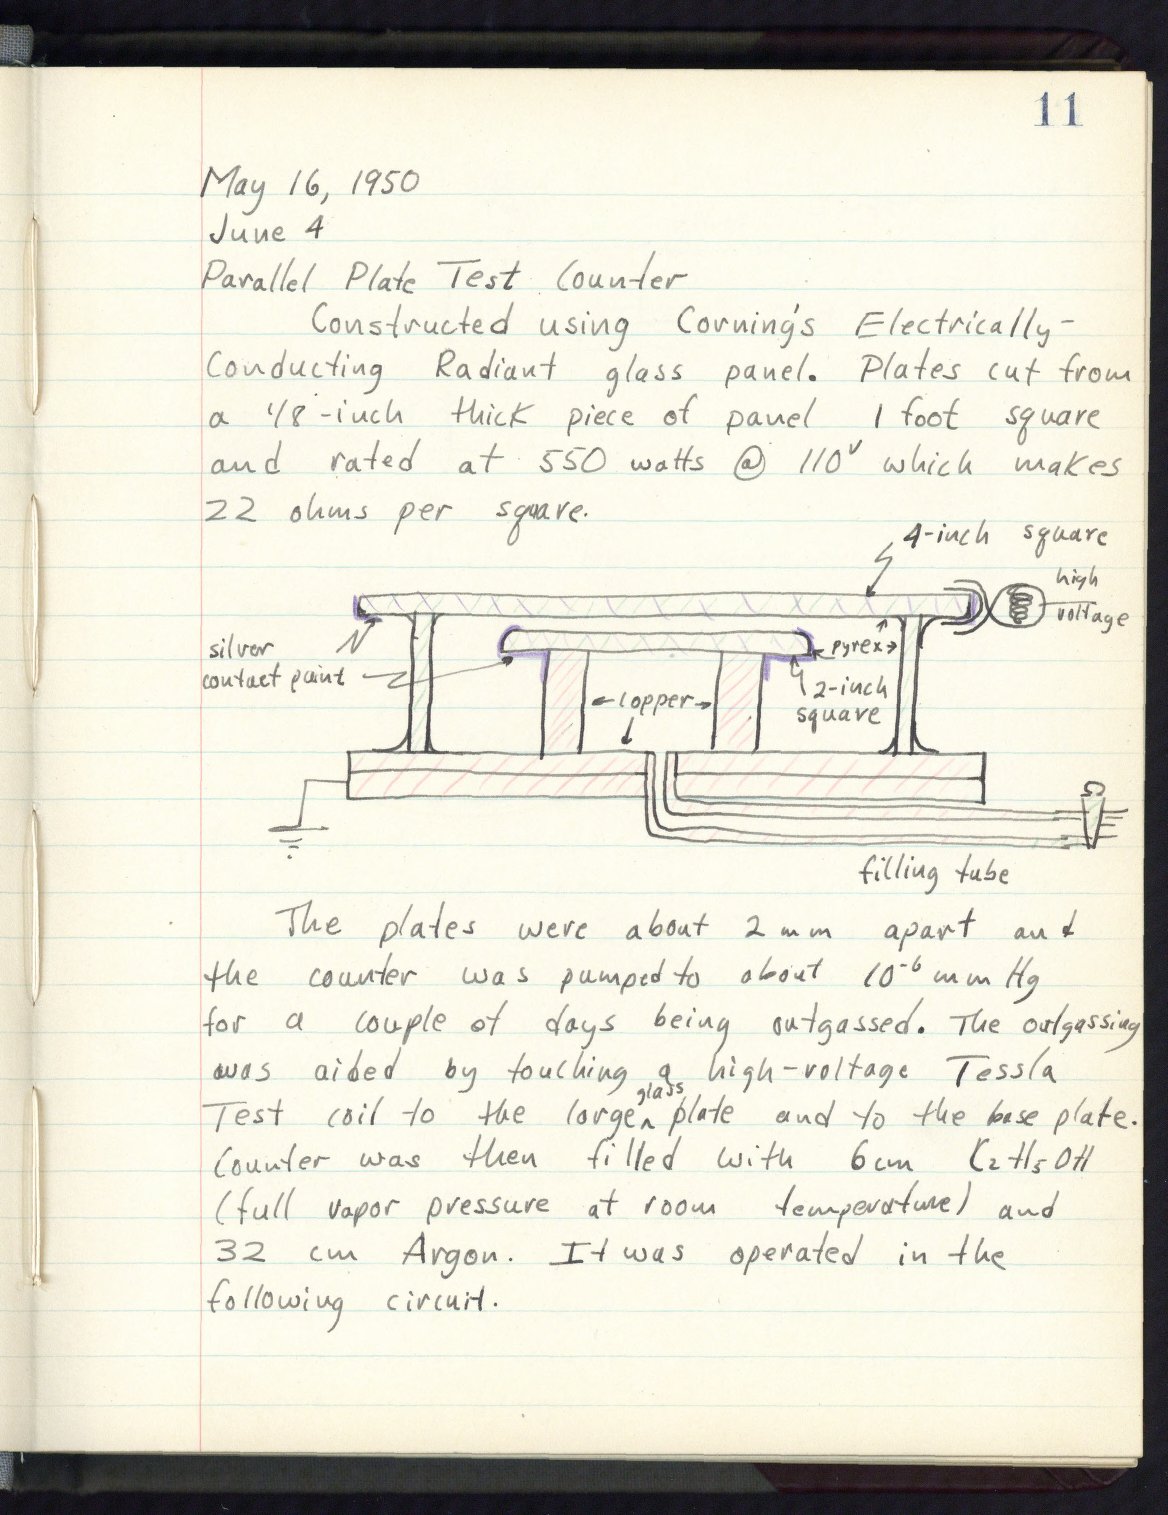 11
May 16, 1950
June 4
Parallel Plate Test Counter
Constructed using Corning's Electrically-
Conducting Radiant glass panel. Plates cut from
a 1/8-inch thick piece of panel 1 foot square
and rated at 550 watts @ 110v which makes
22 ohms per square.
4-inch square
high
voltage
silver
contact paint
pyrex
2-inch
square
copper
filling tube
The plates were about 2 mm apart and
the counter was pumped to about 10-6 mm Hg
for a couple of days being outgassed. The outgassing
was aided by touching a high-voltage Tessla
Test coil to the large glass plate and to the base plate.
Counter was then filled with 6 cm C2H5OH
(full vapor pressure at room temperature) and
32 cm Argon. It was operated in the
following circuit.